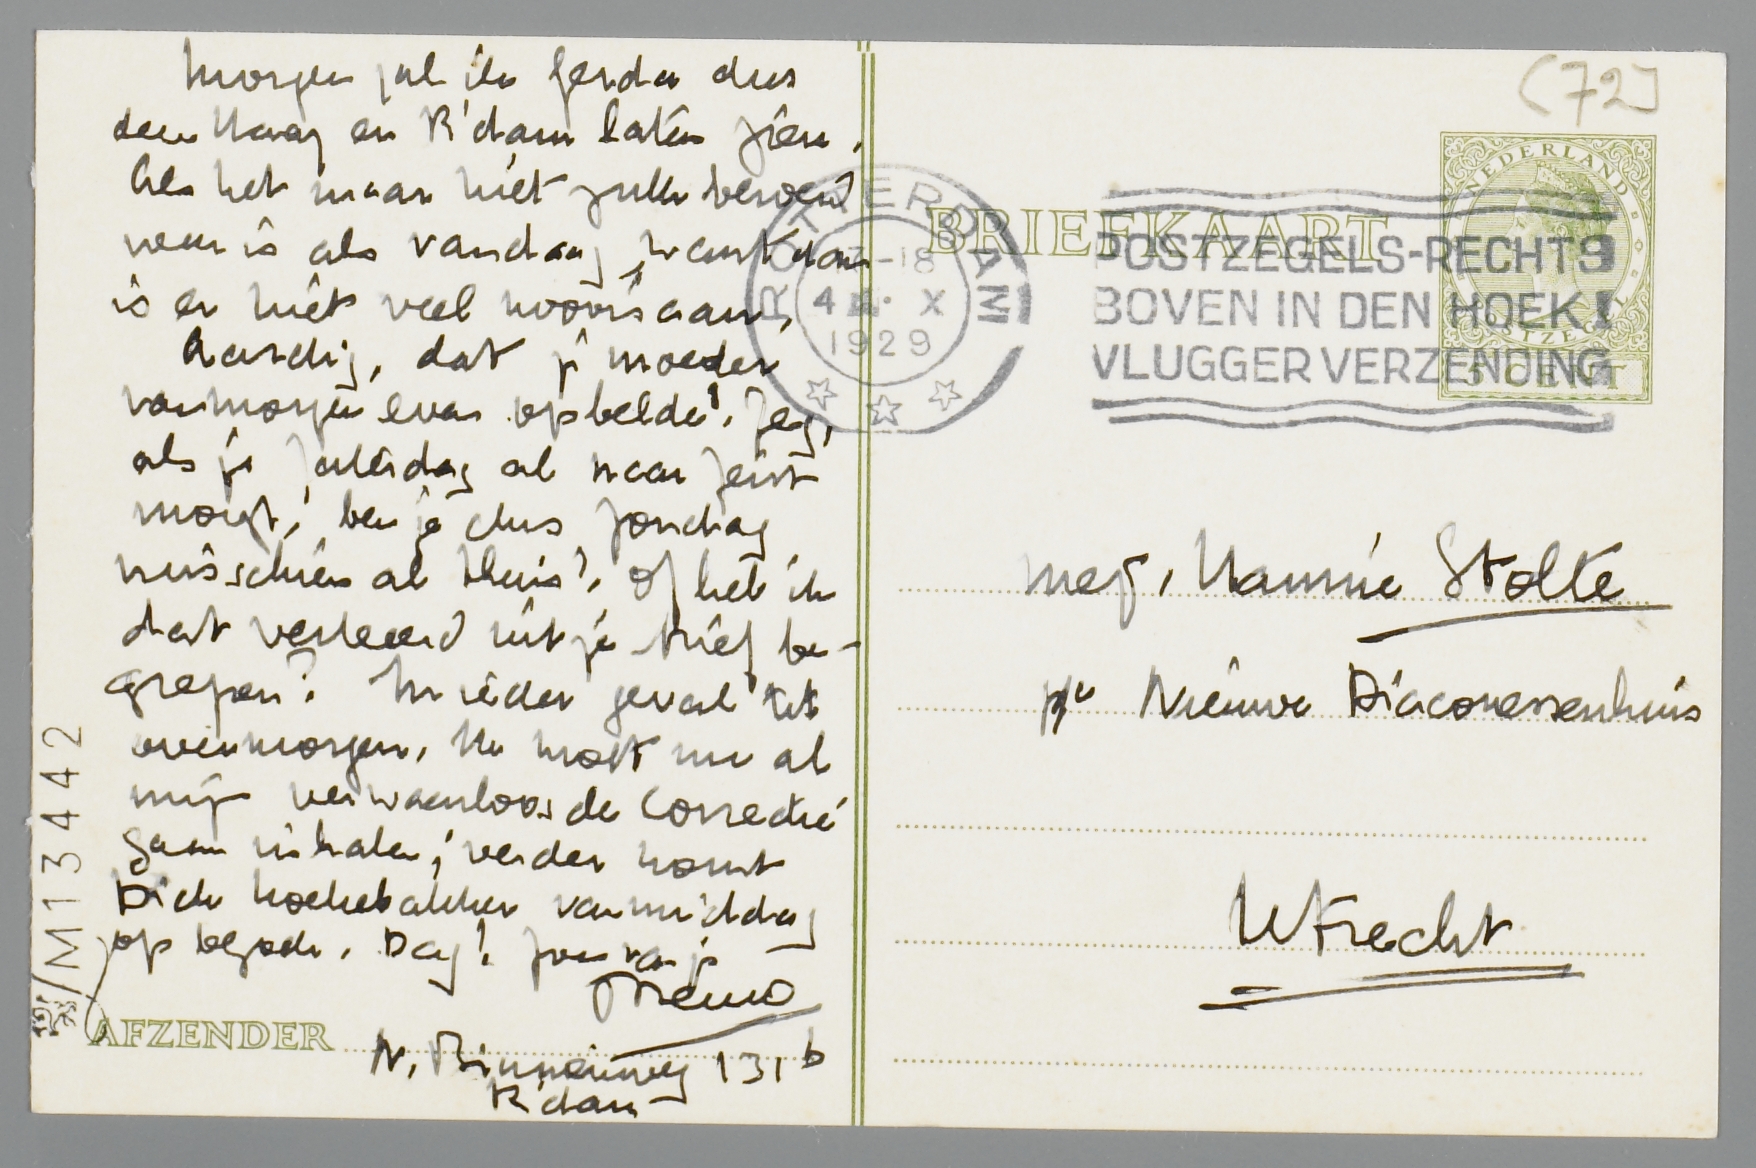 Morgen zal ik Gerda dus
den Haag en R'dam laten zien.
Als het maar niet zulk beroerd
weer is als vandaag, want dan
is er niet veel moois aan.
Aardig, dat je moeder
vanmorgen even opbelde! Zeg,
als je Zaterdag al naar Zeist
moogt, ben je dus Zondag
misschien al thuis? Of heb ik
dat verkeerd uit je brief be-
grepen? In ieder geval tot
overmorgen. Ik moet nu al
mijn verwaarloosde correctie
gaan inhalen; verder komt
Dick Koekebakker vanmiddag
op bezoek. Dag! Zoen van je
Menno
AFZENDER N. Binnenweg 131b
R'dam
M13442
(72)
NEDERLAND
POSTZEGEL
5 CENT
BRIEFKAART
ROTTERDAM
-18
4 X
1929
POSTZEGELS-RECHTS
BOVEN IN DEN HOEK!
VLUGGER VERZENDING
mej. Hannie Stolte
p/a Nieuwe Diaconessenhuis
Utrecht